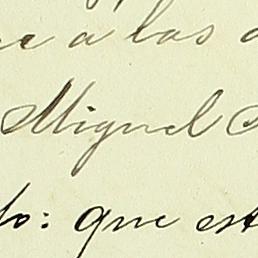 a las
Miguel
do: que est